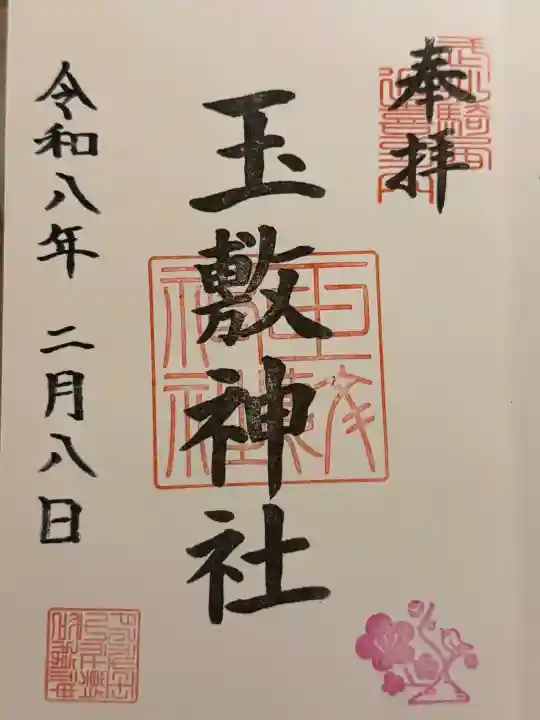 奉拝
玉敷神社
令和八年 二月八日
玉敷神社